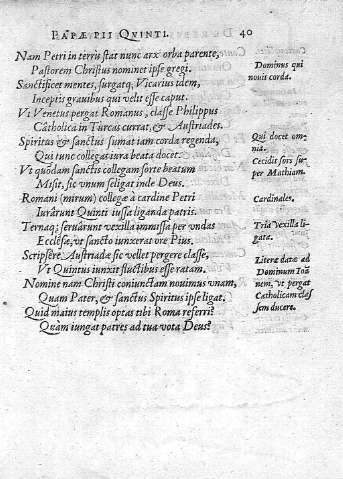 PAPÆ PII QVINTI. 40
Nam Petri in terris stat nunc arx orba parente,
Pastorem Christus nominet ipse gregi.
Sanctificet mentes, surgatq; Vicarius idem,
Inceptis grauibus qui velit esse caput.
Vt Venetus pergat Romanus, classe Philippus
Catholica in Turcas currat, & Austriades.
Spiritus & sanctus sumat iam corda regenda,
Qui tunc collegas iura beata docet.
Vt quõdam sanctis collegam sorte beatum
Misit, sic vnum seligat inde Deus.
Romani (mirum) collegæ a cardine Petri
Iurârunt Quinti iussa liganda patris.
Ternaq; seruârunt vexilla immissa per vndas
Ecclesæ, vt sancto iunxerat ore Pius.
Scripsêre Austriadæ sic vellet pergere classe,
Vt Quintus iunxit fluctibus esse ratam.
Nomine nam Christi coniunctam nouimus vnam,
Quam Pater, & sanctus Spiritus ipse ligat.
Quid maius templis optas tibi Roma referri?
Quam iungat patres ad tua vota Deus?
Dominus qui
nouis corda.
Qui docet om
nia.
Cecidit sors su-
per Mathiam.
Cardinales.
Tria vexilla li-
gata.
Literæ datæ ad
Dominum Ioã
nem, vt pergat
Catholicam clas
sem ducere.